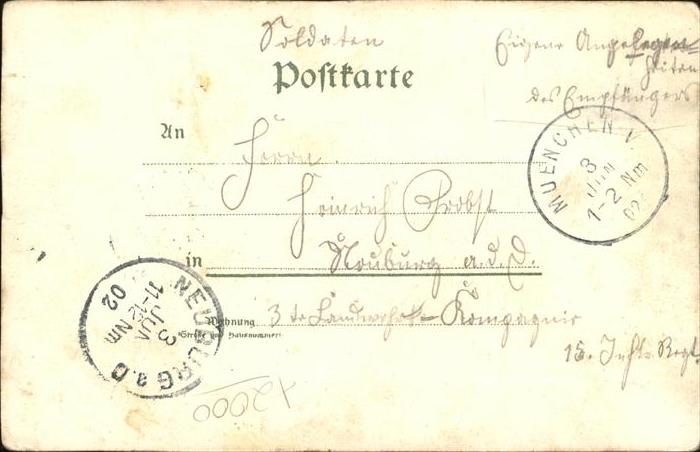 Soldaten
Postkarte
Eigene Angelegen-
heiten
des Empfängers
MUENCHEN I.
3
JUN
1-2 Nm
02
An
Herrn
Heinrich Probst
in
Neuburg a.d.D.
Wohnung
(Straße und Hausnummer)
3te Landwehr-Kompagnie
15. Inftr. Regt.
NEUBURG a.D
3
JUN
11-12 Nm
02
12000